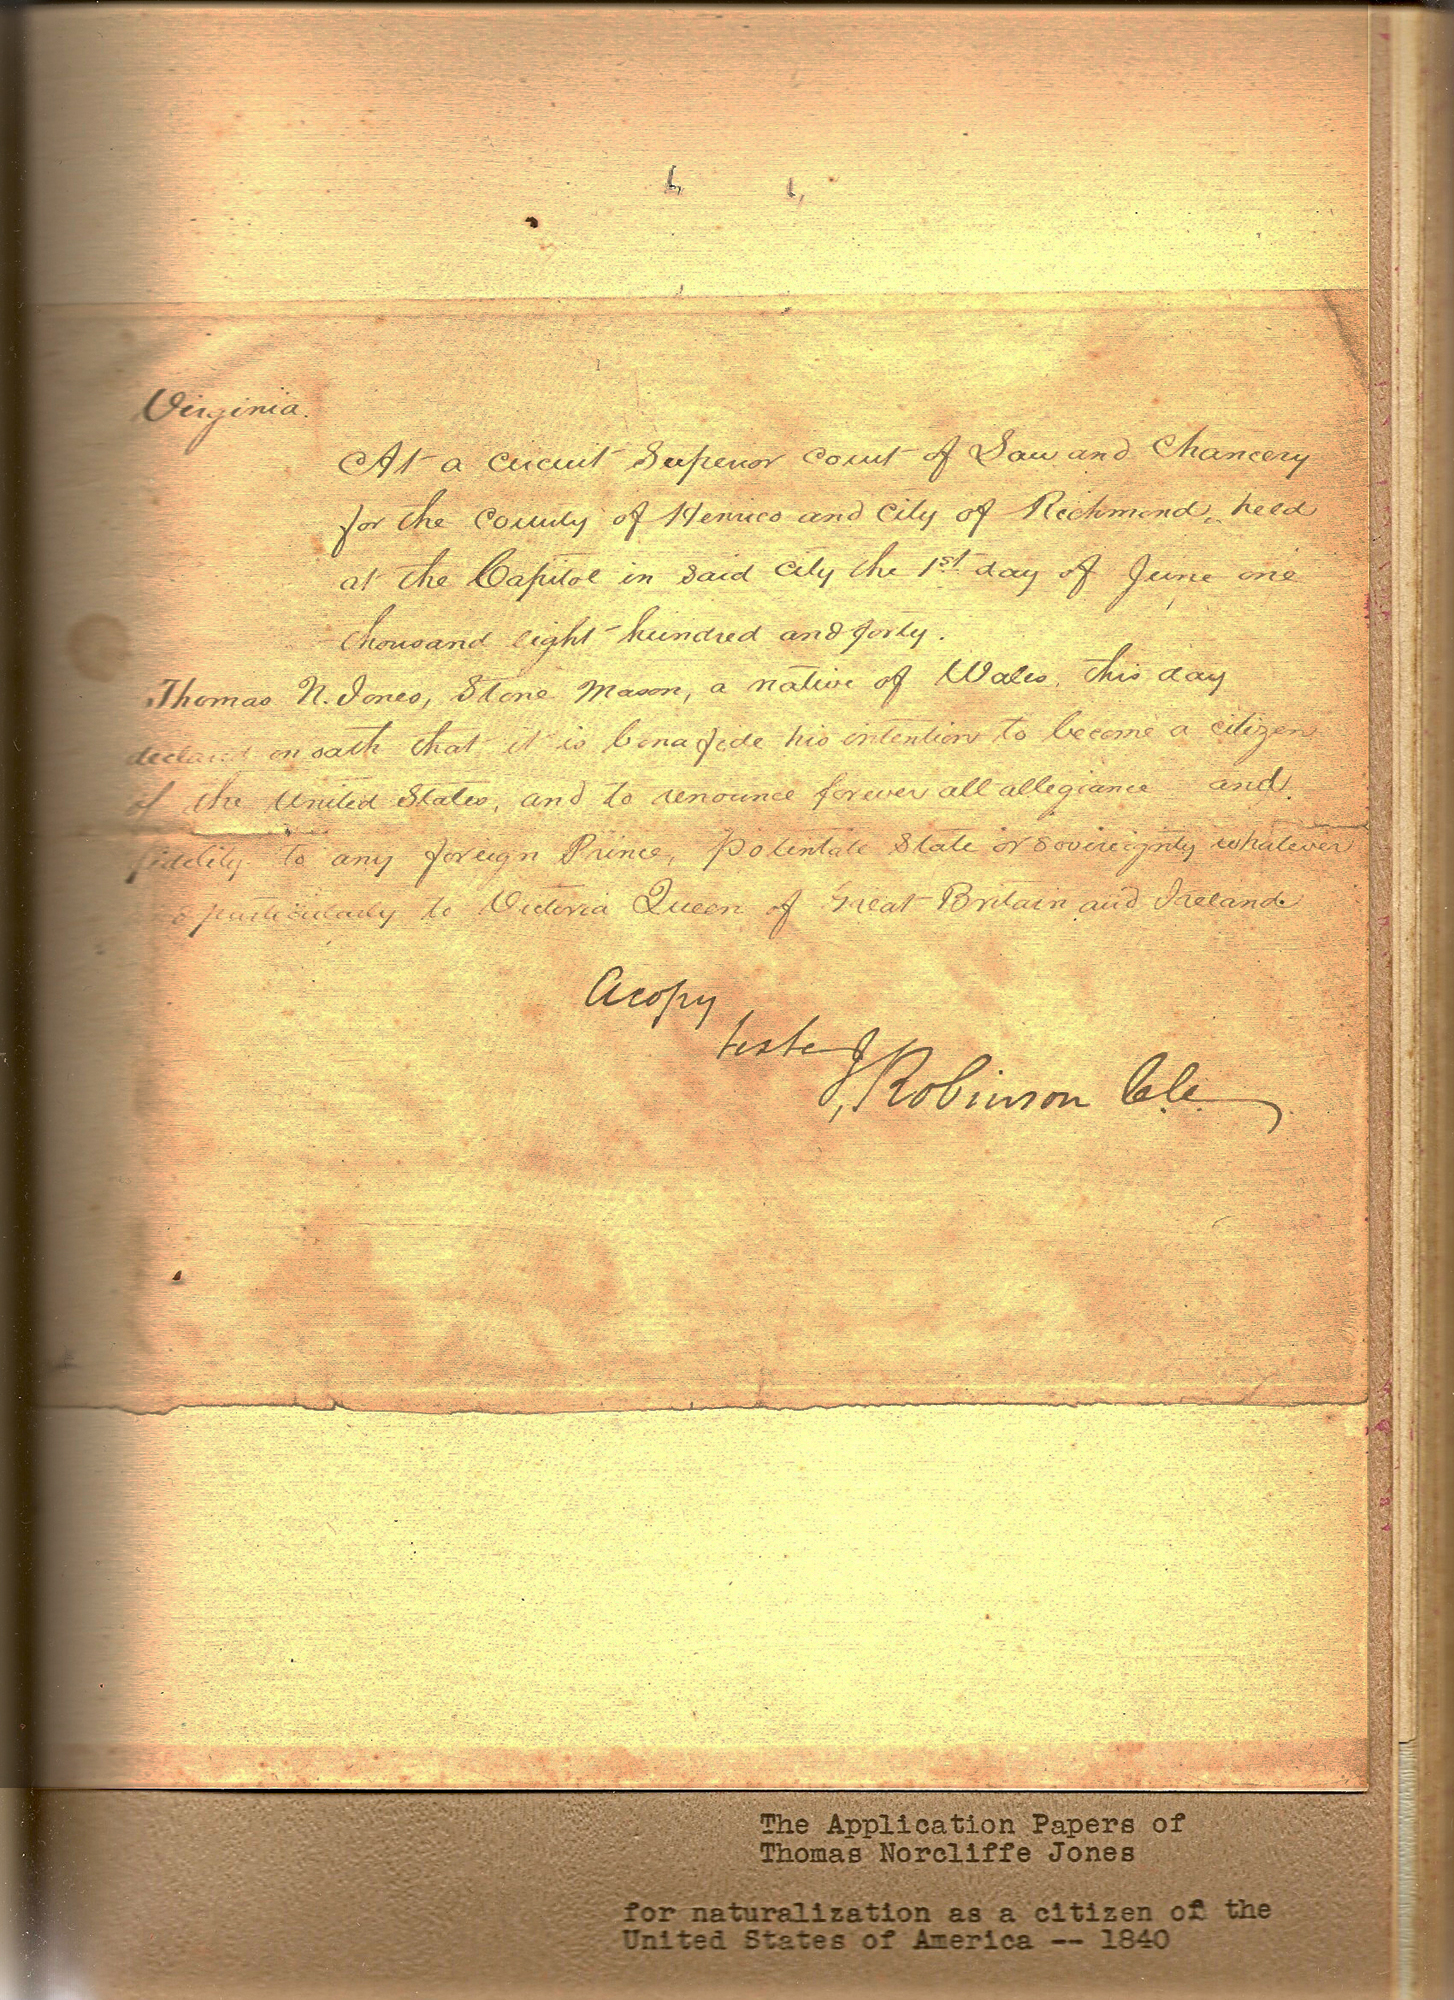 Virginia.
At a circuit Superior court of Law and Chancery
for the county of Henrico and city of Richmond, held
at the Capitol in said city the 1st day of June one
thousand eight hundred and forty.
Thomas N. Jones, Stone Mason, a native of Wales, this day
declared on oath that it is bona fide his intention to become a citizen
of the United States, and to renounce forever all allegiance and
fidelity to any foreign Prince, Potentate State or sovereignty whatever
particularly to Victoria Queen of Great Britain and Ireland
A copy
teste J Robinson C.C.
The Application Papers of
Thomas Norcliffe Jones
for naturalization as a citizen of the
United States of America -- 1840